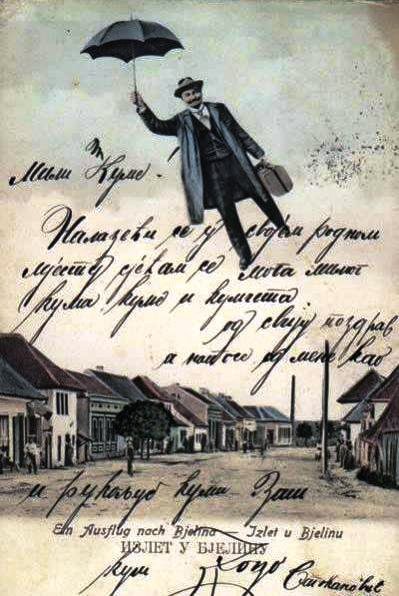 Мили Куме.
Налазећи се у својем родном
мјесту сјећам се мога милог
кума куме и кумчета
од свију поздрав
а нарoсо од мене као
и рукољуб куми Ваш
Ein Ausflug nach Bjelina — Izlet u Bjelinu
ИЗЛЕТ У БЈЕЛИНУ
кум